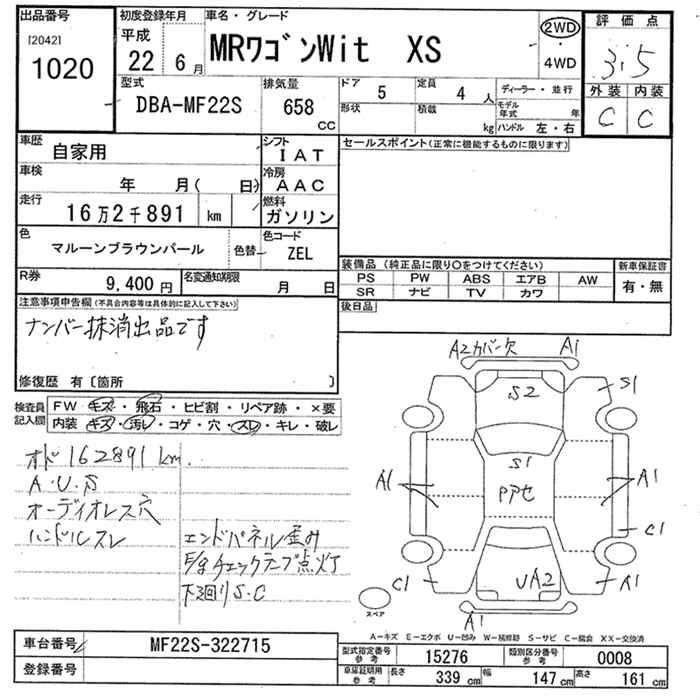 出品番号
[2042]
1020
初度登録年月
平成
22 6月
車名・グレード
MRワゴンWit XS
2WD
4WD
評価点
3.5
外装 内装
C C
型式
DBA-MF22S
排気量
658
CC
ドア
5
定員
4 人
ディーラー・並行
形状
積載
kg
モデル年式 年
ハンドル 左・右
車歴
自家用
シフト
IAT
セールスポイント(正常に機能するものに限ります)
車検
年 月( 日)
冷房
AAC
走行
16万2千891 km
燃料
ガソリン
色
マルーンブラウンパール
色替
色コード
ZEL
R券
9,400円
名変通知期限
月 日
装備品(純正品に限り○をつけてください)
新車保証書
PS PW ABS エアB AW
SR ナビ TV カワ
有・無
後日品
注意事項申告欄(不具合内容等は具体的に記入して下さい)
ナンバー抹消出品です
修復歴 有〔箇所 〕
検査員記入欄
FW キズ・飛石・ヒビ割・リペア跡・×要
内装 キズ・汚レ・コゲ・穴・スレ・キレ・破レ
オド162891km.
A・U・S
オーディオレス穴
ハンドルスレ
エンドパネル歪み
チェックランプ点灯
下廻りS.C
A2カバー欠 A1
S2 S1
S1
A1 A1
C1
C1 UA2 A1
A1
スペア
A-キズ E-エクボ U-凹み W-補修跡 S-サビ C-腐食 XX-交換済
車台番号
MF22S-322715
登録番号
型式指定番号 参考
15276
類別区分番号 参考
0008
車庫証明用 参考
長さ 339 cm
幅 147 cm
高さ 161 cm